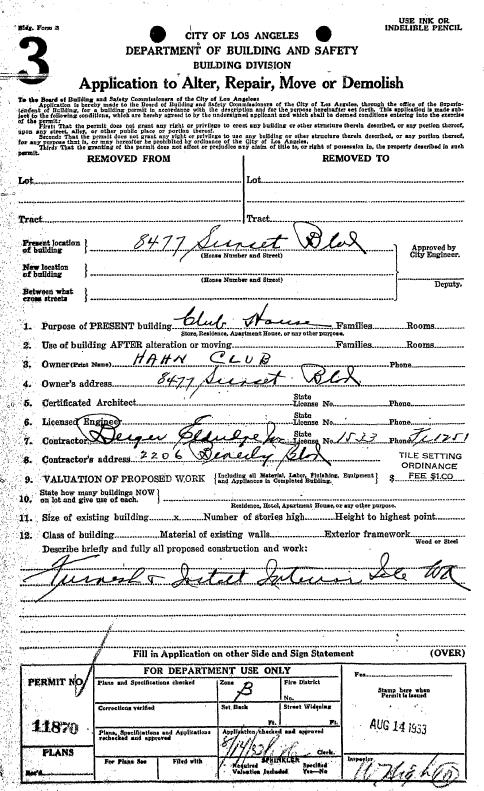 Bldg. Form 3
USE INK OR
INDELIBLE PENCIL
3
CITY OF LOS ANGELES
DEPARTMENT OF BUILDING AND SAFETY
BUILDING DIVISION
Application to Alter, Repair, Move or Demolish
To the Board of Building and Safety Commissioners of the City of Los Angeles:
Application is hereby made to the Board of Building and Safety Commissioners of the City of Los Angeles, through the office of the Superin-
tendent of Building, for a building permit in accordance with the description and for the purpose hereinafter set forth. This application is made sub-
ject to the following conditions, which are hereby agreed to by the undersigned applicant and which shall be deemed conditions entering into the exercise
of the permit:
First: That the permit does not grant any right or privilege to erect any building or other structure therein described, or any portion thereof,
upon any street, alley, or other public place or portion thereof.
Second: That the permit does not grant any right or privilege to use any building or other structure therein described, or any portion thereof,
for any purpose that is, or may hereafter be prohibited by ordinance of the City of Los Angeles.
Third: That the granting of the permit does not affect or prejudice any claim of title to, or right of possession in, the property described in such
permit.
REMOVED FROM REMOVED TO
Lot Lot
Tract Tract
Present location of building 8477 Sunset Blvd
(House Number and Street)
Approved by
City Engineer.
New location of building
(House Number and Street)
Between what cross streets
Deputy.
1. Purpose of PRESENT building Club House Families Rooms
Store, Residence, Apartment House, or any other purpose.
2. Use of building AFTER alteration or moving Families Rooms
3. Owner (Print Name) HAHN CLUB Phone
4. Owner's address 8477 Sunset Blvd
5. Certificated Architect State License No. Phone
6. Licensed Engineer State License No. Phone
7. Contractor State License No. 1523 Phone 1251
8. Contractor's address 2206 Beverly Blvd
TILE SETTING
ORDINANCE
FEE $1.00
9. VALUATION OF PROPOSED WORK {Including all Material, Labor, Finishing, Equipment and Appliances in Completed Building.} $
10. State how many buildings NOW on lot and give use of each.
Residence, Hotel, Apartment House, or any other purpose.
11. Size of existing building x Number of stories high Height to highest point
12. Class of building Material of existing walls Exterior framework
Wood or Steel
Describe briefly and fully all proposed construction and work:
Furnish & Install Interior Tile
Fill in Application on other Side and Sign Statement (OVER)
FOR DEPARTMENT USE ONLY
PERMIT NO.
11870
PLANS
Rec'd
Plans and Specifications checked
Corrections verified
Plans, Specifications and Applications
rechecked and approved
For Plans See Filed with
Zone
B
Fire District
No.
Set Back
Ft.
Street Widening
Ft.
Application checked and approved
8/14/33
Clerk.
SPRINKLER
Required
Valuation Included
Specified
Yes—No
Fee
Stamp here when
Permit is issued
AUG 14 1933
Inspector